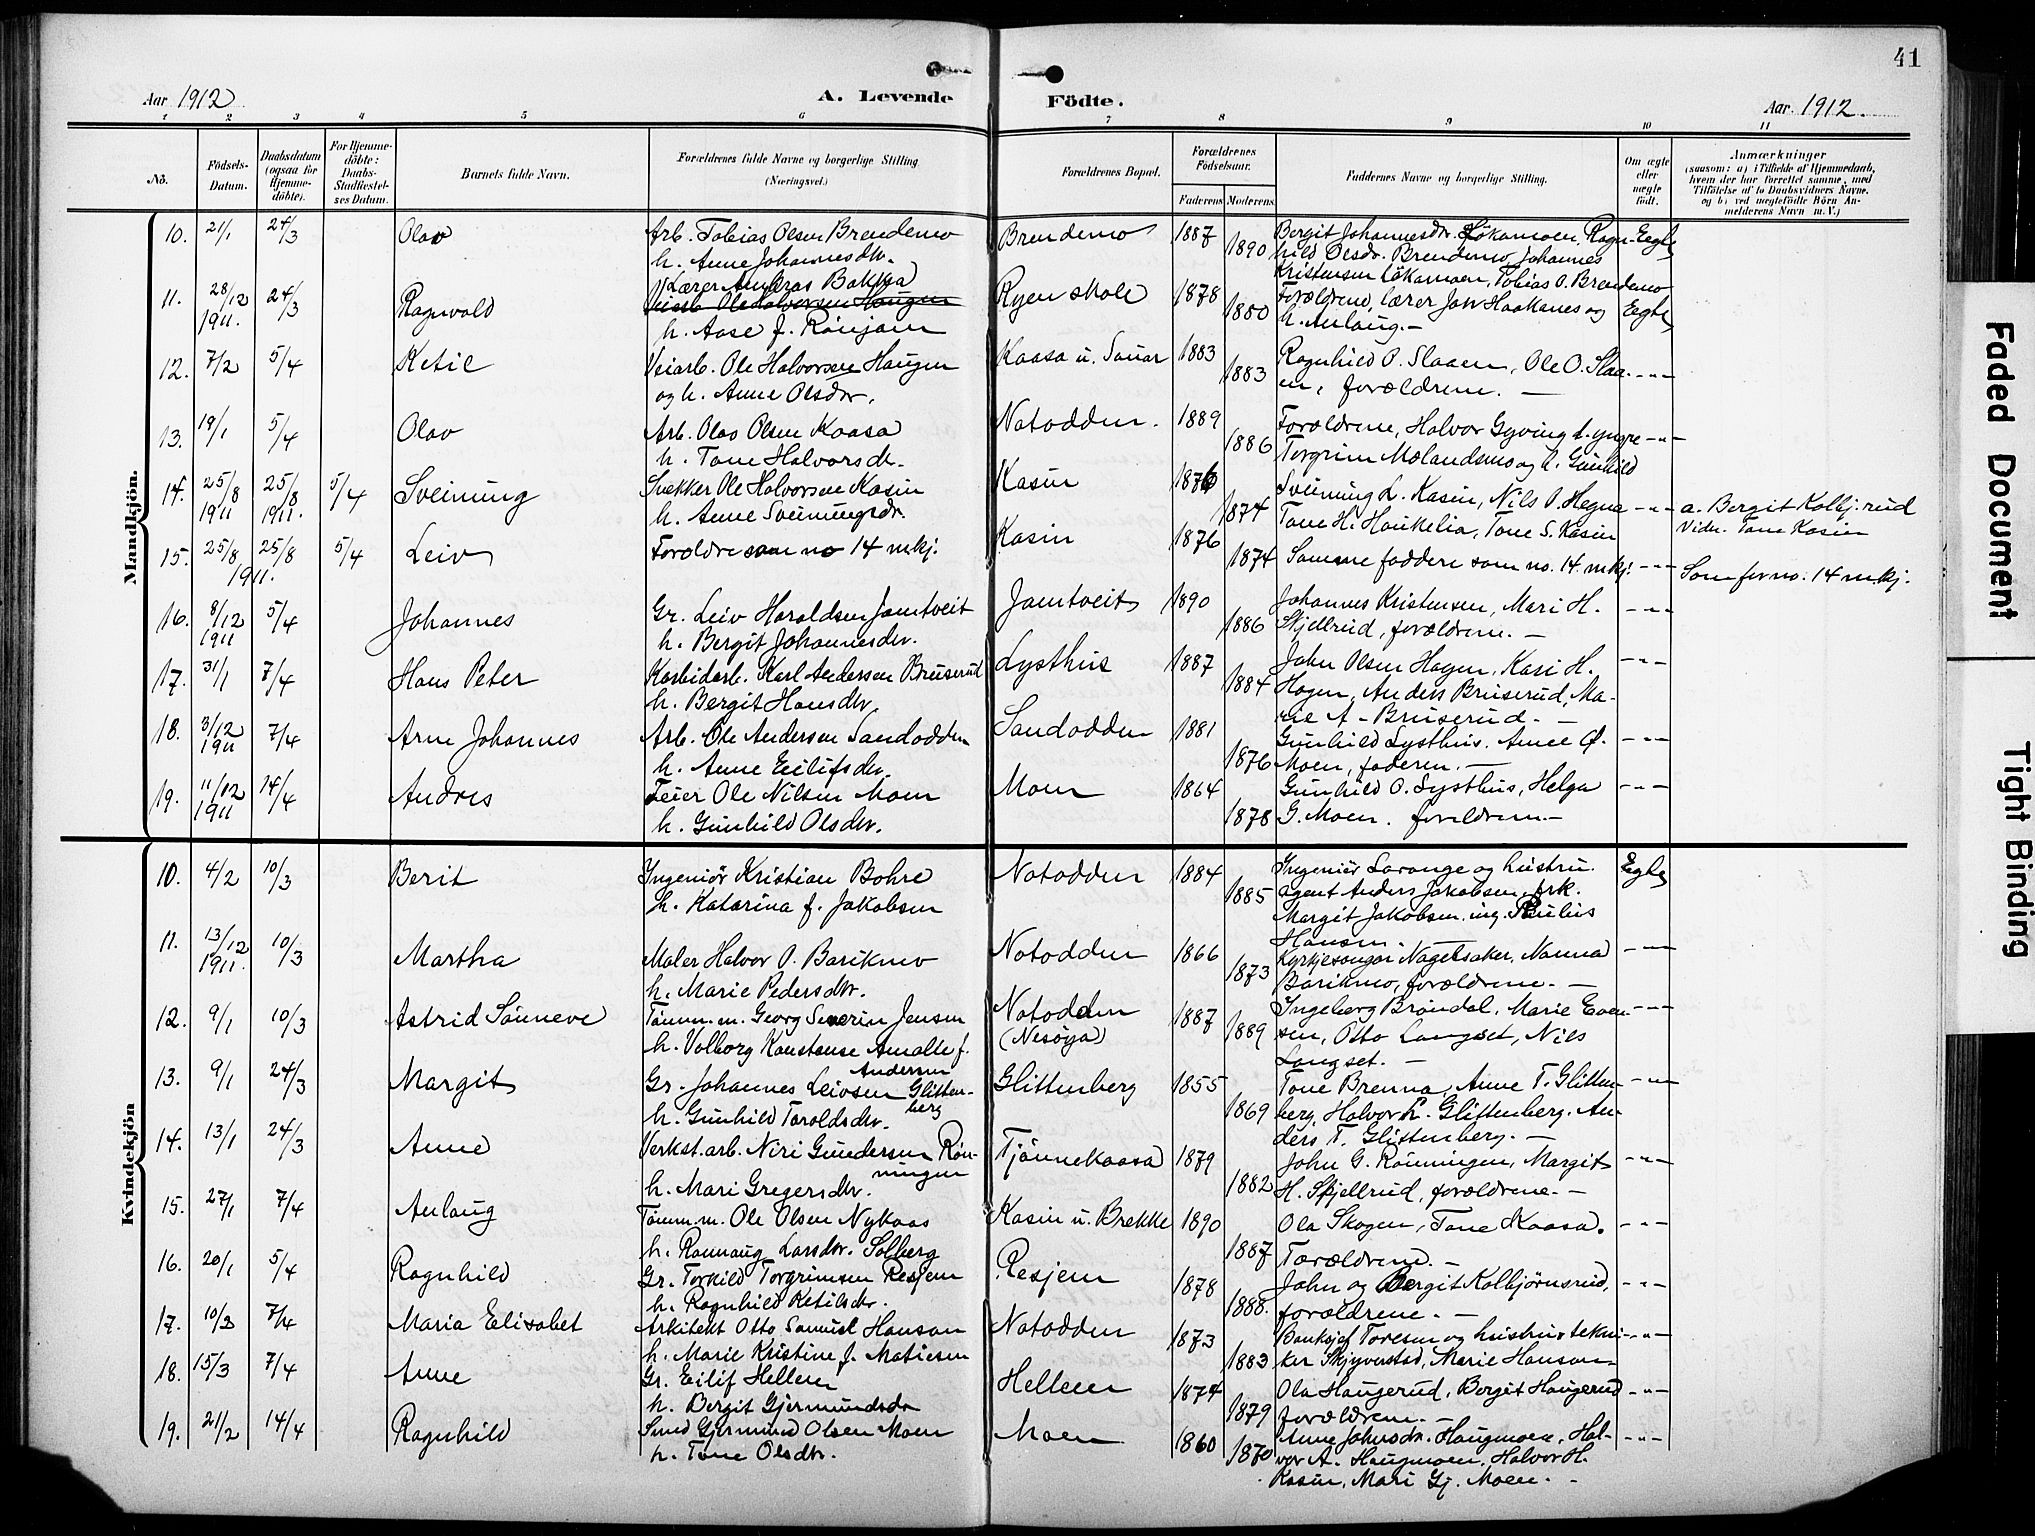 41
Aar 1912
A. Levende
Födte.
Aar 1912.
1 2 3 4 5 6 7 8 9 10 11
No.
Födsels-Datum.
Daabsdatum (ogsaa for Hjemme-döbte).
For Hjemme-döbte: Daabs-Stadfæstel-ses Datum.
Barnets fulde Navn.
Forældrenes fulde Navne og borgerlige Stilling. (Næringsvei.)
Forældrenes Bopæl.
Forældrenes Födselsaar.
Faderens Moderens
Faddernes Navne og borgerlige Stilling.
Om ægte eller uægte født.
Anmærkninger
(saasom: a) i Tilfælde af Hjemmedaab, hvem der har forrettet samme, med Tilföielse af to Daabsvidners Navne. og b) ved uægtefödte Börn An-melderens Navn m. V.)
Mandkjön.
10. 21/1 24/3 Olav Arb. Tobias Olsen Brendemo Brendemo 1887 Bergit Johannesdr. Løkamoen, Ragn- Egte
h. Anne Johannesdtr. 1890 hild Olsdr. Brendemo, Johannes
Kristensen Løkamoen, Tobias O. Brendemo
11. 28/12 1911. 24/3 Ragnvald Lærer Andras Bakka Ryen skole 1878 Forældrene, lærer Jow Haakanes og Egte
Veiarb. Ole Halvorsen Haugen
h. Aase f. Rønjom 1880 h. Anlaug.-
12. 7/2 5/4 Ketil Veiarb. Ole Halvorsen Haugen Kaasa u. Sauar 1883 Ragnhild O. Slaaen, Ole O. Slaa- -"-
og h. Anne Olsdr. 1883 en, forældrene. -
13. 19/1 5/4 Olav Arb. Olav Olsen Kaasa Notodden. 1889 Forældrene, Halvor Gyving d. yngre -"-
h. Tone Halvorsdr. 1886 Torgrim Mælandsmo og h. Gunhild
14. 25/8 1911 25/8 1911. 5/4 Sveinung Snekker Ole Halvorsen Kasin Kasin 1876 Sveinung L. Kasin, Nils O. Hegna -"- a. Bergit Kolbj.rud
h. Anne Sveinungsdr. 1874 Tone H. Haukelia, Tone S. Kasin Vidn. Tone Kasin
15. 25/8 25/8 1911. 5/4 Leiv Forældre som no 14 mkj. Kasin 1876
1874 Samme faddere som no. 14. mkj. -"- Som for no. 14 mkj.
16. 8/12 1911 5/4 Johannes Gr. Leiv Haraldsen Jamtveit Jamtveit 1890 Johannes Kristensen, Mari H. -"-
h. Bergit Johannesdr. 1886 Skjellrud, forældrene. -
17. 31/1 7/4 Hans Peter Karbidarb. Karl Andersen Bruserud Lysthus 1887 John Olsen Hagen, Kari H. -"-
h. Bergit Hansdr. 1884 Hagen, Anders Bruserud, Ma-
rie A- Bruserud. -
18. 3/12 1911 7/4 Arne Johannes Arb. Ole Andersen Sandodden Sandodden 1881 Gunhild Lysthus. Anne Ø. -"-
h. Anne Eilifsdr. 1876 Moen, faderen. -
19. 11/12 1911 14/4 Andres Feier Ole Nilsen Moen Moen 1864 Gunhild O. Lysthus, Helga -"-
h. Gunhild Olsdr. 1878 G. Moen. foreldrene.-
Kvindekjön
10. 4/2 10/3 Berit Ingeniør Kristian Bohre Notodden 1884 Ingeniør Lorange og hustru. Egte
h. Katarina f. Jakobsen 1885 agent Anders Jakobsen, frk.
Margit Jakobsen. ing. Paulus
Hansen. -
11. 13/12 1911. 10/3 Martha Maler Halvor O. Barikmo Notodden 1866 Kyrkjesongar Nagelsaker, Nanna -"-
h. Marie Pedersdtr. 1873 Barikmo, forældrene. -
12. 9/1 10/3 Astrid Sønneve Tømm.m. Georg Severin Jensen Notodden 1887 Ingeborg Brøndal, Marie Even- -"-
h. Valborg Konstanse Amalie f. Andersen (Nesøya) 1889 sen, Otto Langset, Nils
Langset. -
13. 9/1 24/3 Margit Gr. Johannes Leivsen Glitten-berg Glittenberg 1855 Tone Brenna, Anne T. Glitten- -"-
h. Gunhild Taroldsdr. 1869 berg, Halvor L. Glittenberg. An-
ders T. Glittenberg. -
14. 13/1 24/3 Anne Verkst.arb. Niri Gundersen Røn-ningen Tjønnekaasa 1879 John G. Rønningen, Margit -"-
h. Mari Gregersdtr. 1882 H. Skjellrud, forældrene. -
15. 27/1 7/4 Anlaug Tømm.m. Ole Olsen Nykaas Kasin u. Brekke 1890 Ola Skogen, Tone Kaasa. -"-
h. Rannaug Larsdtr. Solberg 1887 Forældrene. -
16. 20/1 5/4 Ragnhild Gr. Torkild Torgrimsen Resjem Resjem 1878 John og Bergit Kolbjørnsrud, -"-
h. Ragnhild Ketilsdr. 1888. forældrene. -
17. 10/3 7/4 Maria Elisabet Arkitekt Otto Samuel Hanson Notodden 1873 Banksjef Toresen og hustru, tekni- -"-
h. Marie Kristine f. Matiesen 1883 ker Skjyverstad, Marie Hanson-
18. 15/3 7/4 Anne Gr. Eilif Hellem Hellem 1874 Ola Haugerud, Bergit Haugerud -"-
h. Bergit Gjermundsdr 1879 forældrene. -
19. 21/2 14/4 Ragnhild Smed Gjermund Olsen Moen Moen 1860 Anne Johnsdr. Haugmoen, Hal- -"-
h. Tone Olsdtr. 1870 vor A. Haugmoen, Halvor H.
Kasin, Mari Gj. Moen. -
Faded Document
Tight Binding